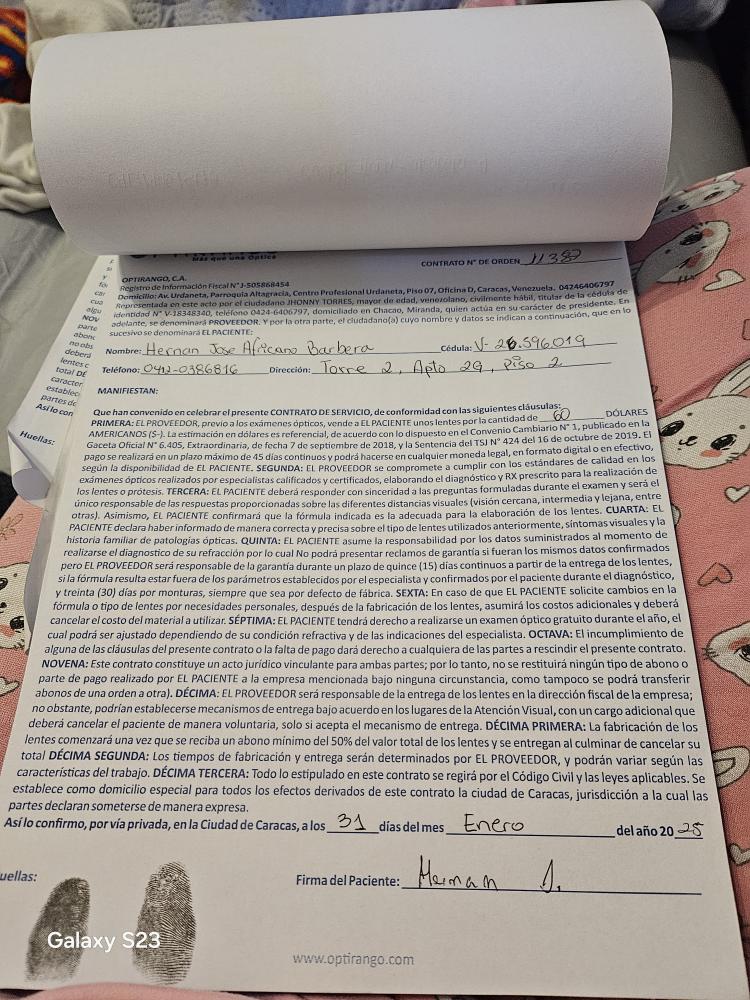 Más que una Óptica
CONTRATO N° DE ORDEN 11387
OPTIRANGO, C.A.
Registro de Información Fiscal N° J-505868454
Domicilio: Av. Urdaneta, Parroquia Altagracia, Centro Profesional Urdaneta, Piso 07, Oficina D, Caracas, Venezuela. 04246406797
Representada en este acto por el ciudadano JHONNY TORRES, mayor de edad, venezolano, civilmente hábil, titular de la cédula de
identidad N° V-18348340, teléfono 0424-6406797, domiciliado en Chacao, Miranda, quien actúa en su carácter de presidente. En
adelante, se denominará PROVEEDOR. Y por la otra parte, el ciudadano(a) cuyo nombre y datos se indican a continuación, que en lo
sucesivo se denominará EL PACIENTE:
Nombre: Hernan Jose Africano Barbera Cédula: V- 26.596.019
Teléfono: 0412-0386816 Dirección: Torre 2, Apto 2G, Piso 2
MANIFIESTAN:
Que han convenido en celebrar el presente CONTRATO DE SERVICIO, de conformidad con las siguientes cláusulas:
PRIMERA: EL PROVEEDOR, previo a los exámenes ópticos, vende a EL PACIENTE unos lentes por la cantidad de 60 DÓLARES
AMERICANOS ($-). La estimación en dólares es referencial, de acuerdo con lo dispuesto en el Convenio Cambiario N° 1, publicado en la
Gaceta Oficial N° 6.405, Extraordinaria, de fecha 7 de septiembre de 2018, y la Sentencia del TSJ N° 424 del 16 de octubre de 2019. El
pago se realizará en un plazo máximo de 45 días continuos y podrá hacerse en cualquier moneda legal, en formato digital o en efectivo,
según la disponibilidad de EL PACIENTE. SEGUNDA: EL PROVEEDOR se compromete a cumplir con los estándares de calidad en los
exámenes ópticos realizados por especialistas calificados y certificados, elaborando el diagnóstico y RX prescrito para la realización de
los lentes o prótesis. TERCERA: EL PACIENTE deberá responder con sinceridad a las preguntas formuladas durante el examen y será el
único responsable de las respuestas proporcionadas sobre las diferentes distancias visuales (visión cercana, intermedia y lejana, entre
otras). Asimismo, EL PACIENTE confirmará que la fórmula indicada es la adecuada para la elaboración de los lentes. CUARTA: EL
PACIENTE declara haber informado de manera correcta y precisa sobre el tipo de lentes utilizados anteriormente, síntomas visuales y la
historia familiar de patologías ópticas. QUINTA: EL PACIENTE asume la responsabilidad por los datos suministrados al momento de
realizarse el diagnostico de su refracción por lo cual No podrá presentar reclamos de garantía si fueran los mismos datos confirmados
pero EL PROVEEDOR será responsable de la garantía durante un plazo de quince (15) días continuos a partir de la entrega de los lentes,
si la fórmula resulta estar fuera de los parámetros establecidos por el especialista y confirmados por el paciente durante el diagnóstico,
y treinta (30) días por monturas, siempre que sea por defecto de fábrica. SEXTA: En caso de que EL PACIENTE solicite cambios en la
fórmula o tipo de lentes por necesidades personales, después de la fabricación de los lentes, asumirá los costos adicionales y deberá
cancelar el costo del material a utilizar. SÉPTIMA: EL PACIENTE tendrá derecho a realizarse un examen óptico gratuito durante el año, el
cual podrá ser ajustado dependiendo de su condición refractiva y de las indicaciones del especialista. OCTAVA: El incumplimiento de
alguna de las cláusulas del presente contrato o la falta de pago dará derecho a cualquiera de las partes a rescindir el presente contrato.
NOVENA: Este contrato constituye un acto jurídico vinculante para ambas partes; por lo tanto, no se restituirá ningún tipo de abono o
parte de pago realizado por EL PACIENTE a la empresa mencionada bajo ninguna circunstancia, como tampoco se podrá transferir
abonos de una orden a otra). DÉCIMA: EL PROVEEDOR será responsable de la entrega de los lentes en la dirección fiscal de la empresa;
no obstante, podrían establecerse mecanismos de entrega bajo acuerdo en los lugares de la Atención Visual, con un cargo adicional que
deberá cancelar el paciente de manera voluntaria, solo si acepta el mecanismo de entrega. DÉCIMA PRIMERA: La fabricación de los
lentes comenzará una vez que se reciba un abono mínimo del 50% del valor total de los lentes y se entregan al culminar de cancelar su
total DÉCIMA SEGUNDA: Los tiempos de fabricación y entrega serán determinados por EL PROVEEDOR, y podrán variar según las
características del trabajo. DÉCIMA TERCERA: Todo lo estipulado en este contrato se regirá por el Código Civil y las leyes aplicables. Se
establece como domicilio especial para todos los efectos derivados de este contrato la ciudad de Caracas, jurisdicción a la cual las
partes declaran someterse de manera expresa.
Así lo confirmo, por vía privada, en la Ciudad de Caracas, a los 31 días del mes Enero del año 20 25
uellas:
Firma del Paciente: Hernan J.
www.optirango.com
Huellas:
Así lo con
Galaxy S23